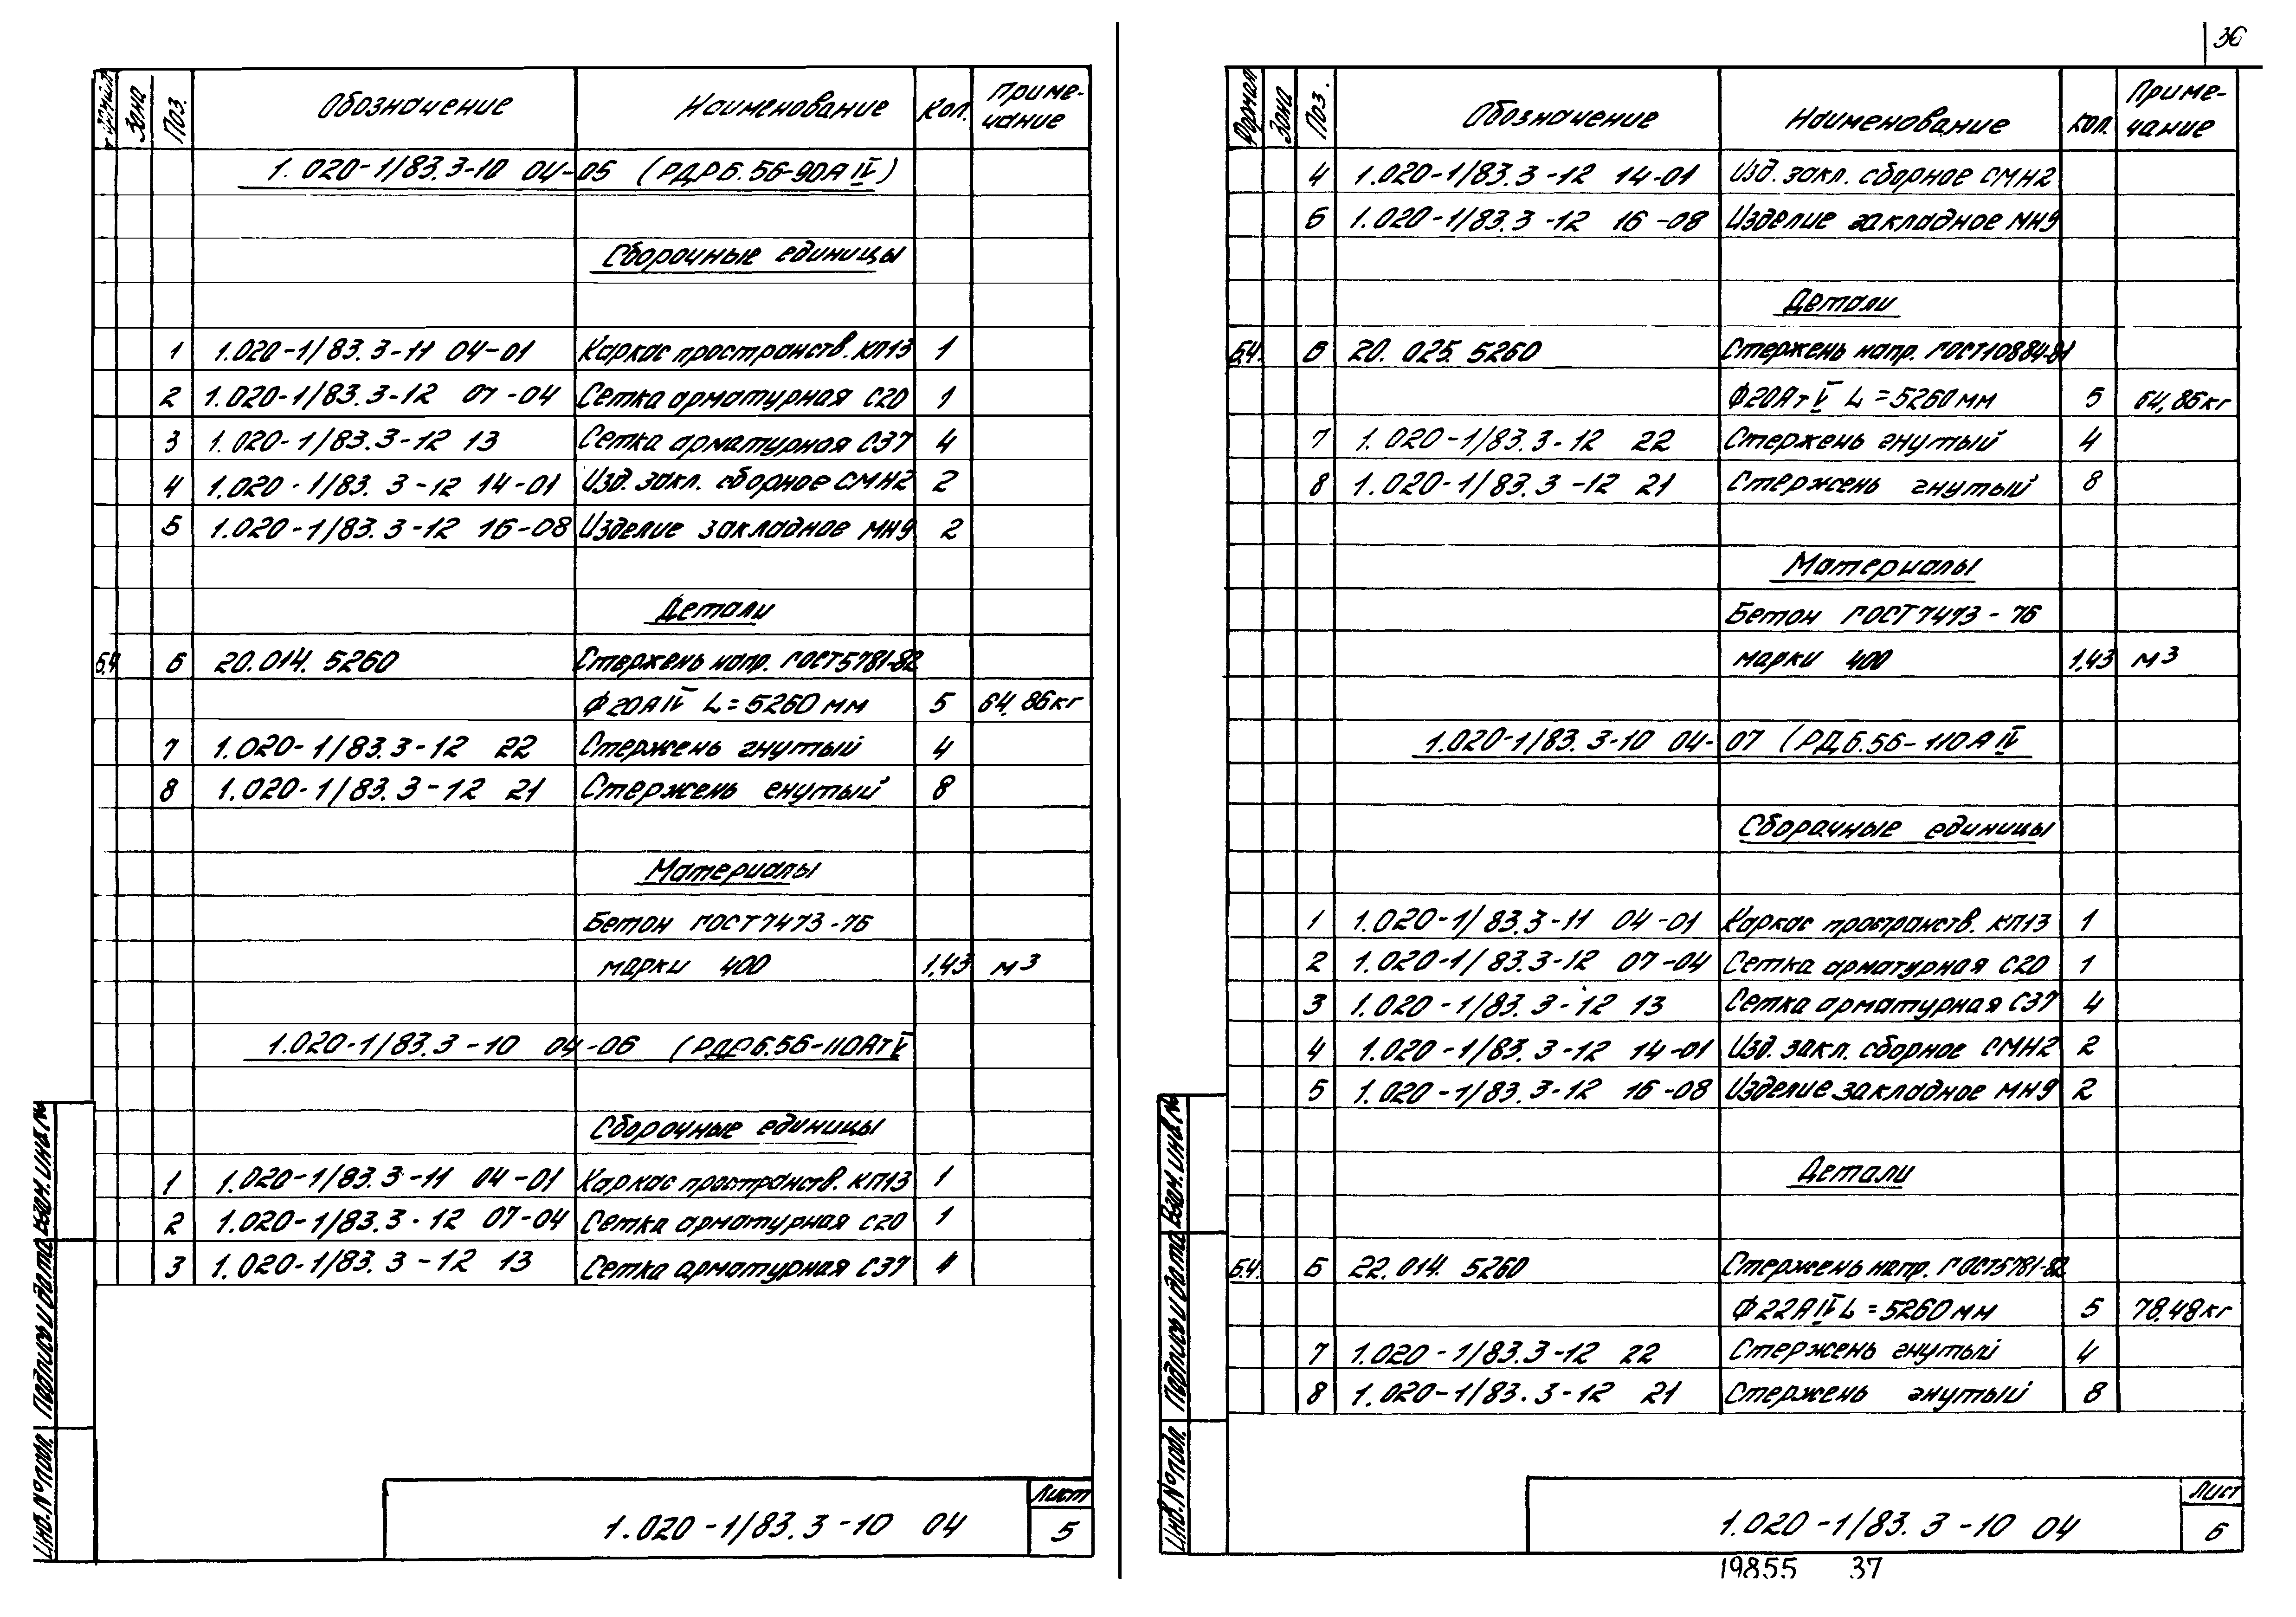 36
Формат Зона Поз. Обозначение Наименование Кол. Приме-
чание
1.020-1/83.3-10 04-05 (РДР6.56-90АIV)
Сборочные единицы
1 1.020-1/83.3-11 04-01 Каркас пространств. КП13 1
2 1.020-1/83.3-12 07-04 Сетка арматурная С20 1
3 1.020-1/83.3-12 13 Сетка арматурная С37 4
4 1.020-1/83.3-12 14-01 Изд. закл. сборное СМН2 2
5 1.020-1/83.3-12 16-08 Изделие закладное МН9 2
Детали
Б.Ч. 6 20.014.5260 Стержень напр. ГОСТ5781-82
Ф20АIV L=5260мм 5 64,86кг
7 1.020-1/83.3-12 22 Стержень гнутый 4
8 1.020-1/83.3-12 21 Стержень гнутый 8
Материалы
Бетон ГОСТ7473-76
марки 400 1,43 м3
1.020-1/83.3-10 04-06 (РДР6.56-110АтV
Сборочные единицы
1 1.020-1/83.3-11 04-01 Каркас пространств. КП13 1
2 1.020-1/83.3-12 07-04 Сетка арматурная С20 1
3 1.020-1/83.3-12 13 Сетка арматурная С37 4
Инв. № подл. Подпись и дата Взам. инв. №
1.020-1/83.3-10 04
Лист
5
Формат Зона Поз. Обозначение Наименование Кол. Приме-
чание
4 1.020-1/83.3-12 14-01 Изд. закл. сборное СМН2
5 1.020-1/83.3-12 16-08 Изделие закладное МН9
Детали
Б.Ч. 6 20.025.5260 Стержень напр. ГОСТ10884-81
Ф20АтV L=5260мм 5 64,86кг
7 1.020-1/83.3-12 22 Стержень гнутый 4
8 1.020-1/83.3-12 21 Стержень гнутый 8
Материалы
Бетон ГОСТ7473-76
марки 400 1,43 м3
1.020-1/83.3-10 04-07 (РД6.56-110АIV
Сборочные единицы
1 1.020-1/83.3-11 04-01 Каркас пространств. КП13 1
2 1.020-1/83.3-12 07-04 Сетка арматурная С20 1
3 1.020-1/83.3-12 13 Сетка арматурная С37 4
4 1.020-1/83.3-12 14-01 Изд. закл. сборное СМН2 2
5 1.020-1/83.3-12 16-08 Изделие закладное МН9 2
Детали
Б.Ч. 6 22.014.5260 Стержень напр. ГОСТ5781-82
Ф22АIV L=5260мм 5 78,48кг
7 1.020-1/83.3-12 22 Стержень гнутый 4
8 1.020-1/83.3-12 21 Стержень гнутый 8
Инв. № подл. Подпись и дата Взам. инв. №
1.020-1/83.3-10 04
Лист
6
19855 37